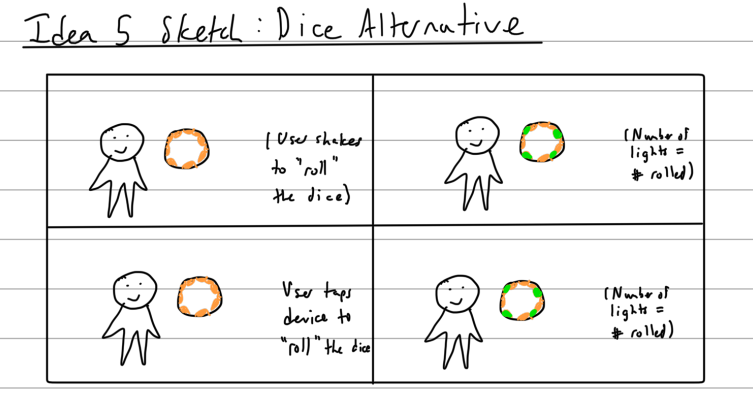 Idea 5 Sketch: Dice Alternative
(User shakes
to "roll"
the dice)
(Number of
lights =
# rolled)
User taps
device to
"roll" the dice
(Number of
lights =
# rolled)